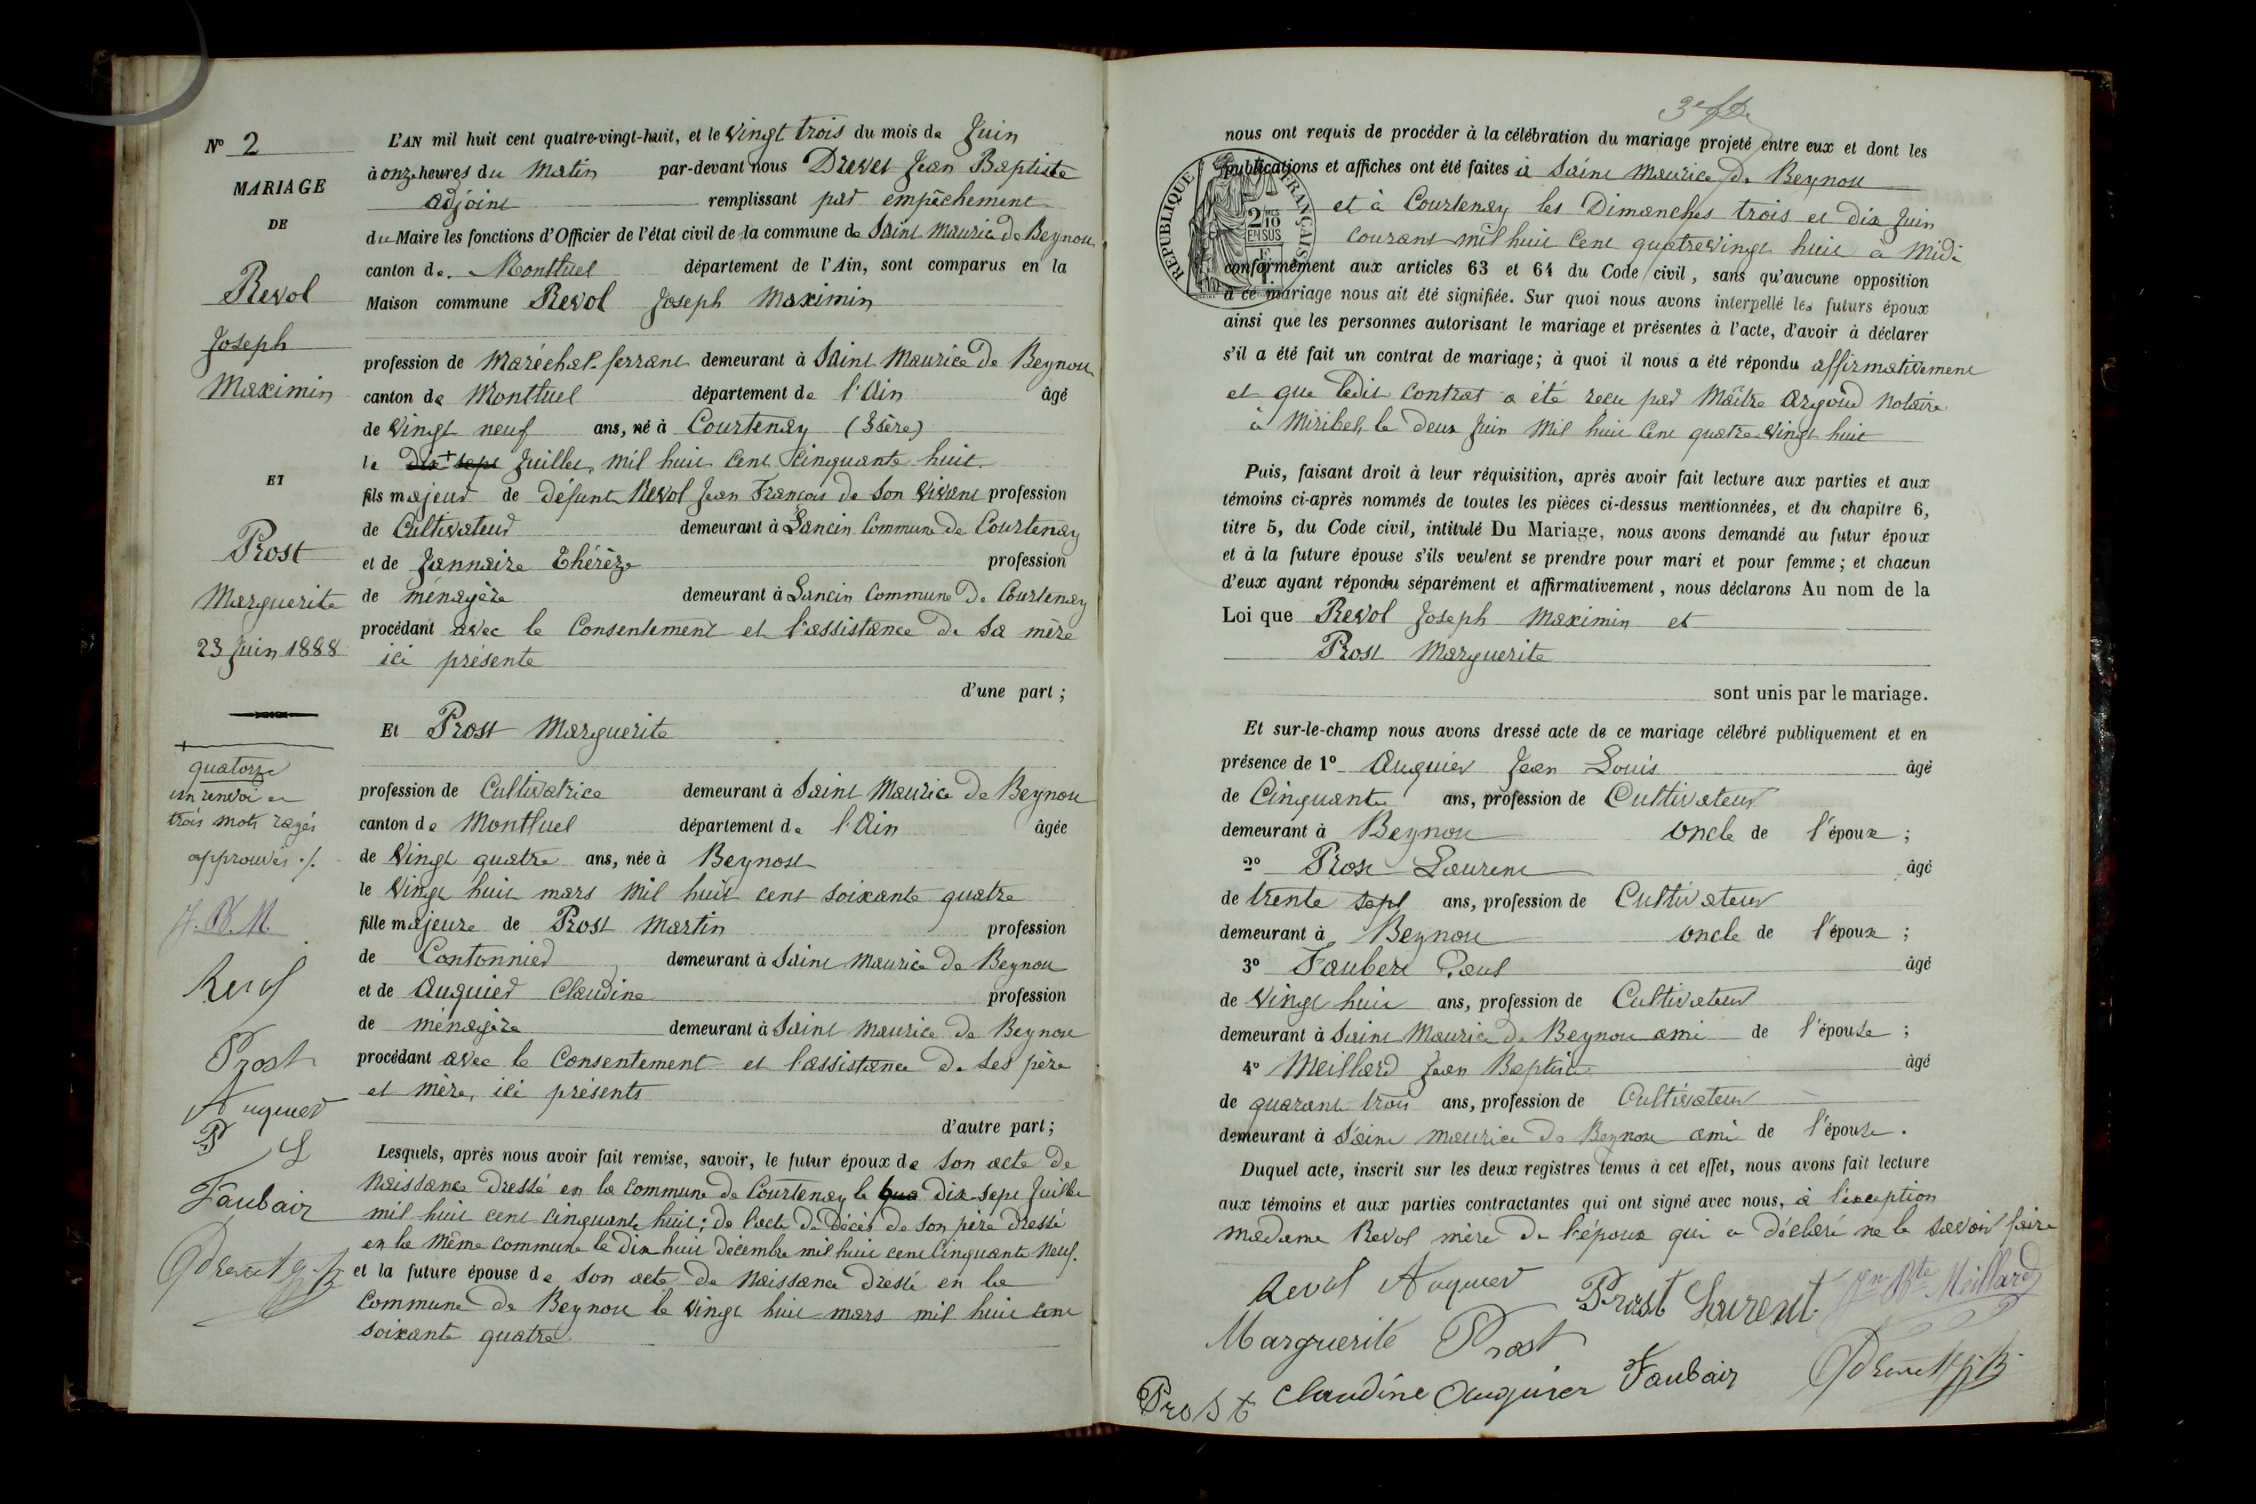 N° 2
MARIAGE
DE
Revol
Joseph
Maximin
ET
Prost
Marguerite
23 Juin 1888
quatorze
un renvoi et
trois mots rayés
approuvés ./.
J. B. M.
Revol
Prost
Auquier
P L
Faubair
Drevet J. B
L'AN mil huit cent quatre-vingt-huit, et le vingt trois du mois de Juin
à onze heures du matin par-devant nous Drevet Jean Baptiste
adjoint remplissant par empêchement
du Maire les fonctions d'Officier de l'état civil de la commune de Saint Maurice de Beynost
canton de Montluel département de l'Ain, sont comparus en la
Maison commune Revol Joseph Maximin
profession de Maréchal-ferrant demeurant à Saint Maurice de Beynost
canton de Montluel département de l'Ain âgé
de vingt neuf ans, né à Courtenay (Isère)
le dix + sept Juillet, mil huit cent cinquante huit
fils majeur de défunt Revol Jean François de son vivant profession
de Cultivateur demeurant à Lancin Commune de Courtenay
et de Jannaire Thérèze profession
de ménagère demeurant à Lancin Commune de Courtenay
procédant avec le Consentement et l'assistance de sa mère
ici présente
d'une part ;
Et Prost Marguerite
profession de Cultivatrice demeurant à Saint Maurice de Beynost
canton de Montluel département de l'Ain âgée
de vingt quatre ans, née à Beynost
le vingt huit mars mil huit cent soixante quatre
fille majeure de Prost Martin profession
de Contonnier demeurant à Saint Maurice de Beynost
et de Auquier Claudine profession
de ménagère demeurant à Saint Maurice de Beynost
procédant avec le Consentement et l'assistance de ses père
et mère, ici présents
d'autre part ;
Lesquels, après nous avoir fait remise, savoir, le futur époux de son acte de
Naissance dressé en la commune de Courtenay le qua dix-sept Juillet
mil huit cent cinquante huit ; de l'acte de Décès de son père dressé
en la même commune le dix huit décembre mil huit cent cinquante neuf.
et la future épouse de son acte de Naissance dressé en la
Commune de Beynost le vingt huit mars mil huit cent
soixante quatre
3e
nous ont requis de procéder à la célébration du mariage projeté entre eux et dont les
publications et affiches ont été faites à Saint Maurice de Beynost
et à Courtenay les Dimanches trois et dix Juin
courant mil huit cent quatre vingt huit à Midi
RÉPUBLIQUE FRANÇAISE
2/10 EN SUS
conformément aux articles 63 et 64 du Code civil, sans qu'aucune opposition
à ce mariage nous ait été signifiée. Sur quoi nous avons interpellé les futurs époux
ainsi que les personnes autorisant le mariage et présentes à l'acte, d'avoir à déclarer
s'il a été fait un contrat de mariage ; à quoi il nous a été répondu affirmativement
et que ledit contrat a été recu par Maître Argoud notaire
à Miribel, le deux Juin mil huit cent quatre-vingt huit
Puis, faisant droit à leur réquisition, après avoir fait lecture aux parties et aux
témoins ci-après nommés de toutes les pièces ci-dessus mentionnées, et du chapitre 6,
titre 5, du Code civil, intitulé Du Mariage, nous avons demandé au futur époux
et à la future épouse s'ils veulent se prendre pour mari et pour femme ; et chacun
d'eux ayant répondu séparément et affirmativement, nous déclarons Au nom de la
Loi que Revol Joseph Maximin et
Prost Marguerite
sont unis par le mariage.
Et sur-le-champ nous avons dressé acte de ce mariage célébré publiquement et en
présence de 1° Auquier Jean Louis âgé
de Cinquante ans, profession de Cultivateur
demeurant à Beynost oncle de l'époux ;
2° Prost Laurent âgé
de trente sept ans, profession de Cultivateur
demeurant à Beynost oncle de l'époux ;
3° Faubert Paul âgé
de vingt huit ans, profession de Cultivateur
demeurant à Saint Maurice de Beynost ami de l'épouse ;
4° Meillard Jean Baptiste âgé
de quarante trois ans, profession de Cultivateur
demeurant à Saint Maurice de Beynost ami de l'épouse.
Duquel acte, inscrit sur les deux registres tenus à cet effet, nous avons fait lecture
aux témoins et aux parties contractantes qui ont signé avec nous, à l'exception
madame Revol mère de l'époux qui a déclaré ne le savoir faire
Revol Auquier Prost Laurent Jn Bte Meillard
Marguerite Prost
Prost Claudine Auquier Faubair Drevet J. B.